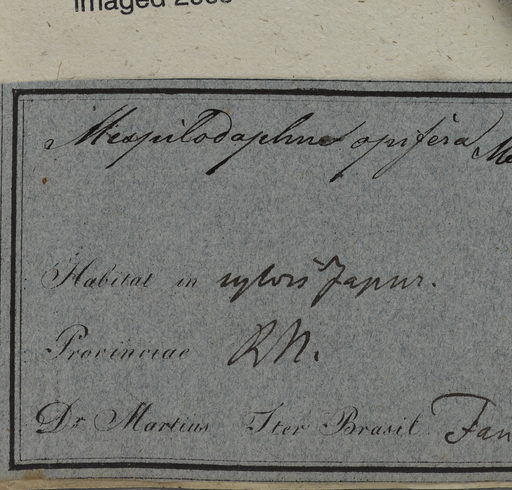 Imaged
Mespilodaphne opifera
Habitat in sylvis Japur.
Provinciae RN.
Dr Martius Iter Brasil.